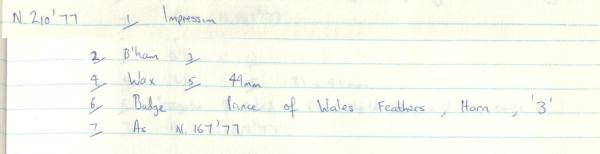 N 210'77 1/ Impression
2/ B'ham 3/
4/ Wax 5/ 44mm
6/ Badge Prince of Wales Feathers, Horn, '3'
7/ As N. 167'77